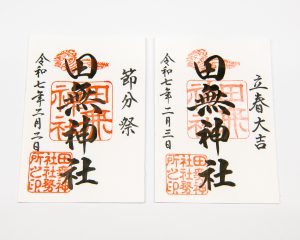 節分祭
田無神社
令和七年二月二日
田無神社
田無神
社社務
所之印
立春大吉
田無神社
令和七年二月三日
田無神社
田無神
社社務
所之印